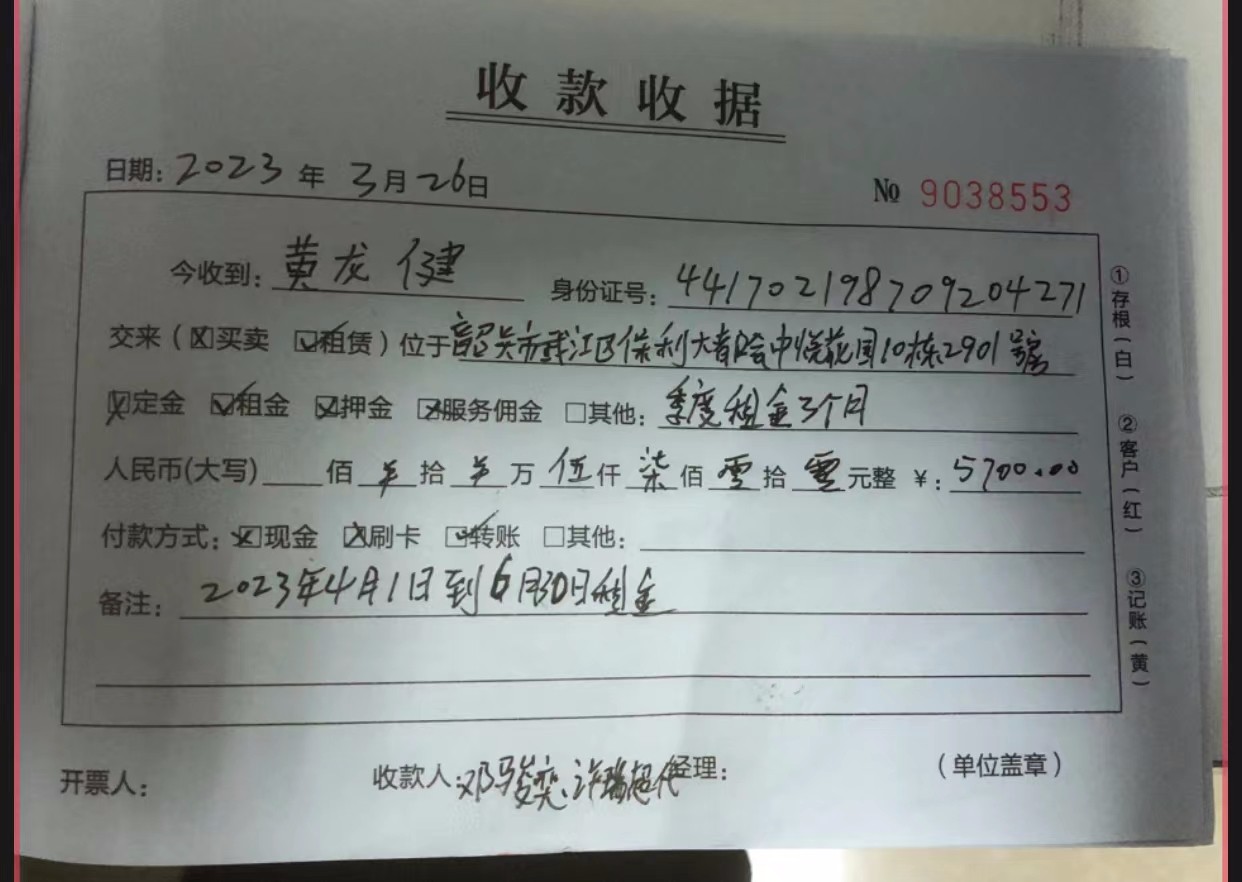 收款收据
日期: 2023 年 3月 26日
№ 9038553
今收到: 黄龙健 身份证号: 441702198709204271
交来 (☒买卖 ☑租赁) 位于韶关市武江区保利大都会中悦花园10栋2901号房
☒定金 ☑租金 ☒押金 ☒服务佣金 □其他: 季度租金3个月
人民币(大写) 佰 拾 万 伍仟 柒佰 零拾 零元整 ¥: 5700.00
付款方式: ☒现金 ☒刷卡 ☑转账 □其他:
备注: 2023年4月1日到6月30日租金
开票人: 收款人: 邓骏奕 许瑞超代 经理: (单位盖章)
①存根(白)
②客户(红)
③记账(黄)